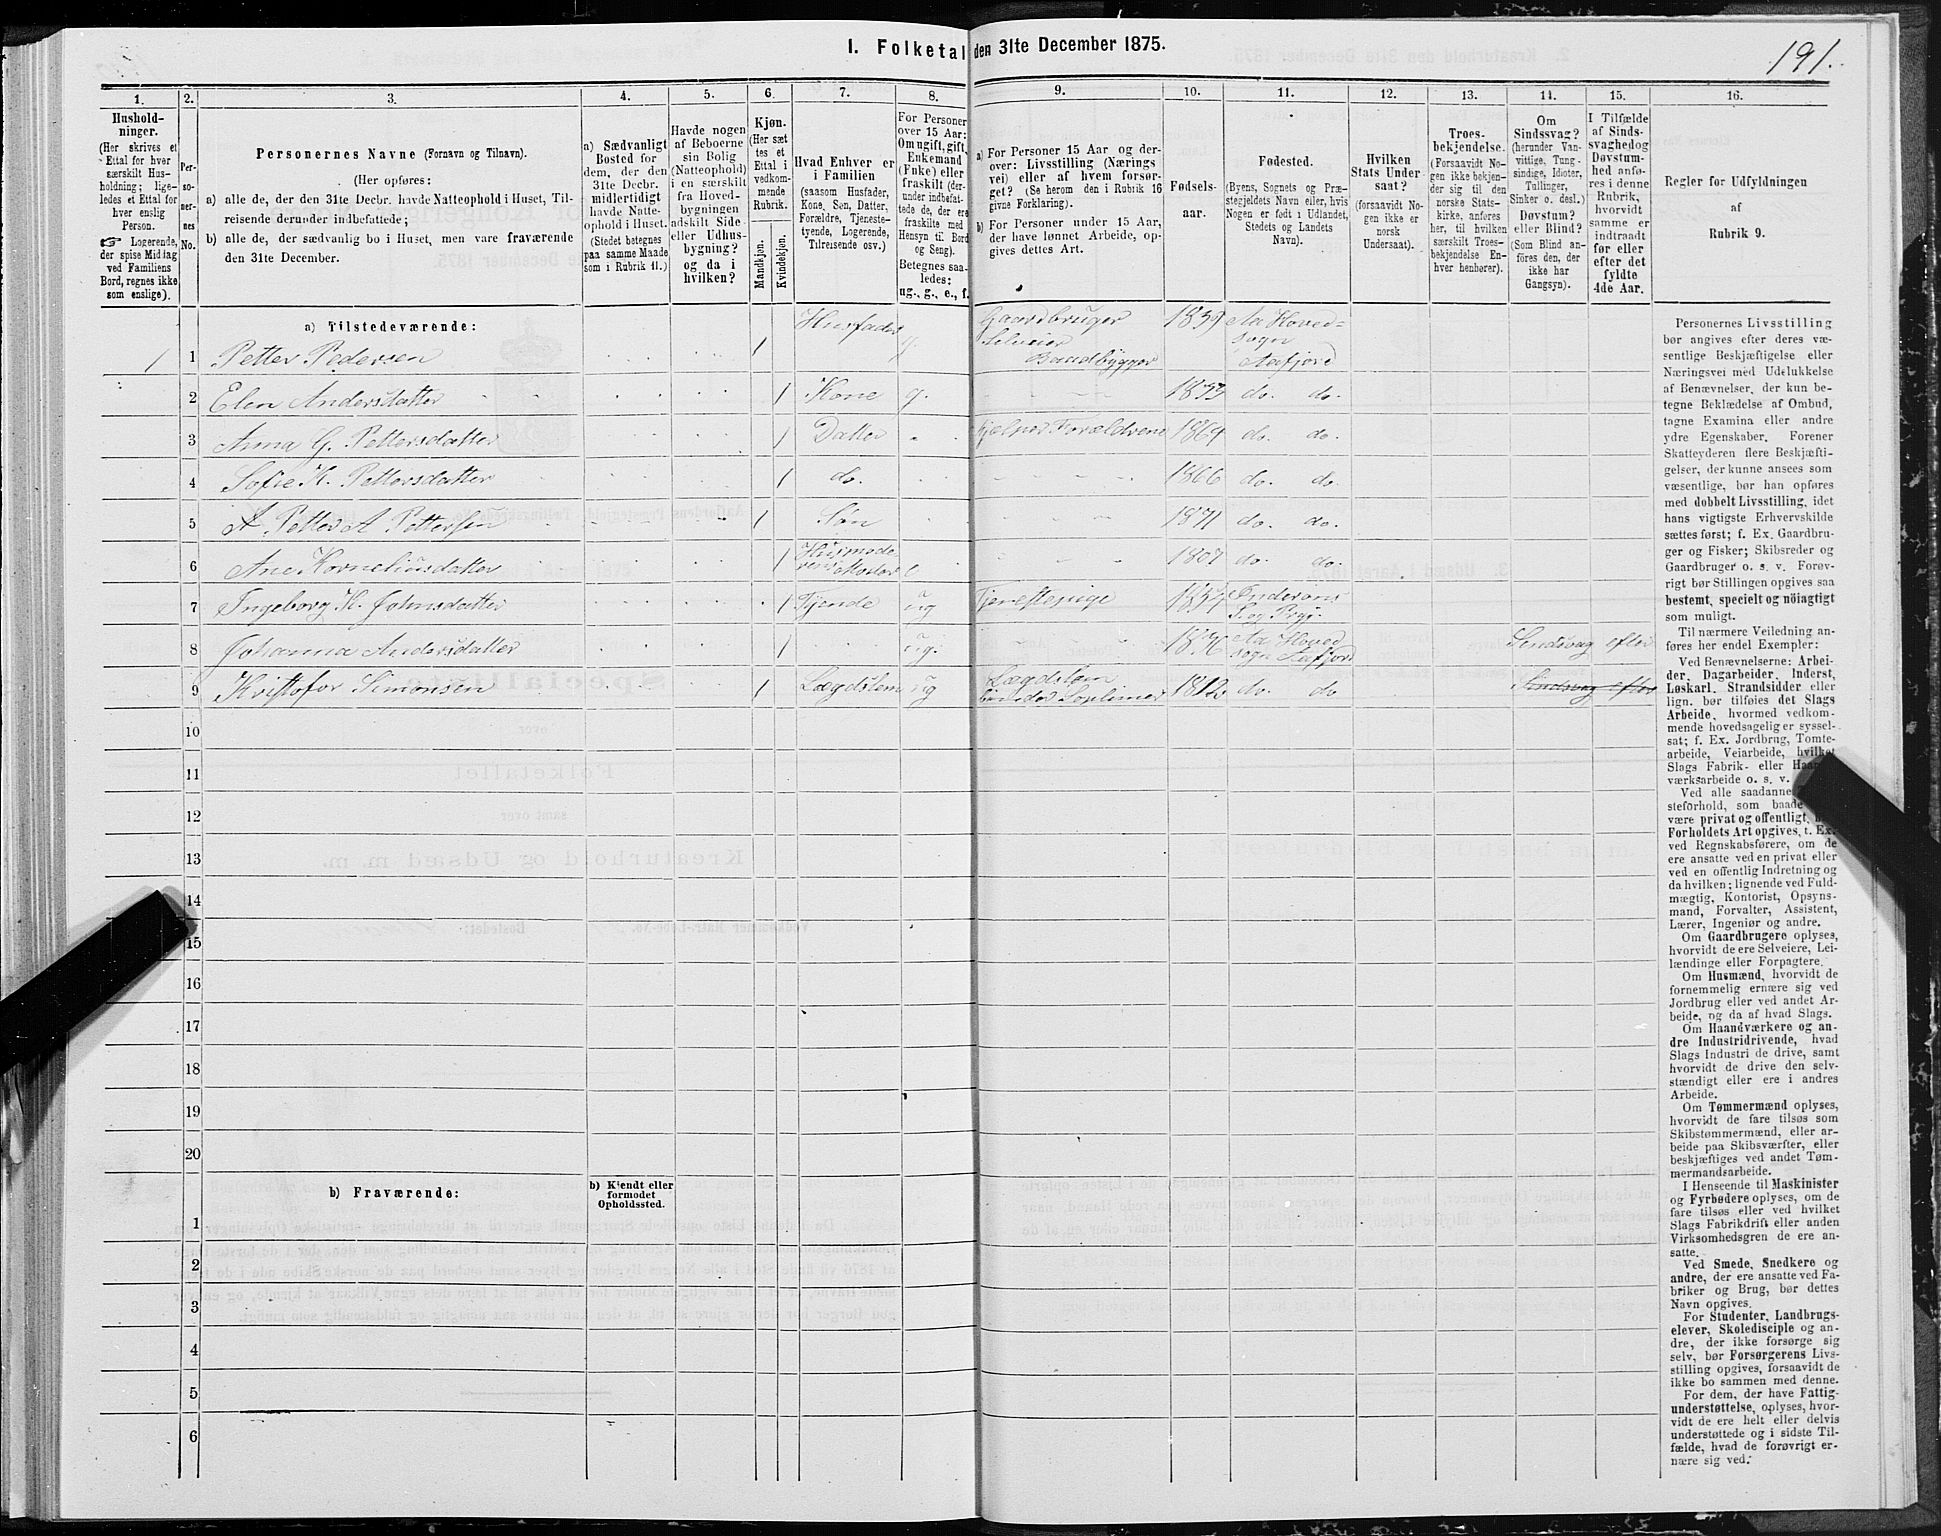 I. Folketal den 31te December 1875.
191.
1.
2.
3.
4.
5.
6.
7.
8.
9.
10.
11.
12.
13.
14.
15.
16.
Hushold-
ninger.
(Her skrives et
Ettal for hver
særskilt Hus-
holdning; lige-
ledes et Ettal for
hver enslig
Person.
☞ Logerende,
der spise Middag
ved Familiens
Bord, regnes ikke
som enslige).
Per-
so-
ner-
nes
No.
Personernes Navne (Fornavn og Tilnavn).
(Her opføres:
a) alle de, der den 31te Decbr. havde Natteophold i Huset, Til-
reisende derunder indbefattede;
b) alle de, der sædvanlig bo i Huset, men vare fraværende
den 31te December.
a) Sædvanligt
Bosted for
dem, der den
31te Decbr.
midlertidigt
havde Natte-
ophold i Huset.
(Stedet betegnes
paa samme Maade
som i Rubrik 11.)
Havde nogen
af Beboerne
sin Bolig
(Natteophold)
i en særskilt
fra Hoved-
bygningen
adskilt Side
eller Udhus-
bygning?
og da i
hvilken?
Kjøn.
(Her sæt
tes et
Ettal i
vedkom-
mende
Rubrik.
Mandkjøn.
Kvindekjøn.
Hvad Enhver er
i Familien
(saasom Husfader,
Kone, Søn, Datter,
Forældre, Tjeneste-
tyende, Logerende,
Tilreisende osv.)
For Personer
over 15 Aar:
Om ugift, gift,
Enkemand
(Enke) eller
fraskilt (der-
under indbefat-
tede de, der ere
fraskilte med
Hensyn til Bord
og Seng).
Betegnes saa-
ledes:
ug., g., e., f.
a) For Personer 15 Aar og der-
over: Livsstilling (Nærings
vei) eller af hvem forsør-
get? (Se herom den i Rubrik 16
givne Forklaring).
b) For Personer under 15 Aar,
der have lønnet Arbeide, op-
gives dettes Art.
Fødsels-
aar.
Fødested.
(Byens, Sognets og Præ-
stegjeldets Navn eller, hvis
Nogen er født i Udlandet,
Stedets og Landets
Navn).
Hvilken
Stats Under
saat?
(forsaavidt No-
gen ikke er
norsk
Undersaat).
Troes-
bekjendelse.
(Forsaavidt No-
gen ikke bekjen-
der sig til den
norske Stats-
kirke, anføres
her, til hvilken
særskilt Troes-
bekjendelse En-
hver henhører).
Om
Sindssvag?
(herunder Van-
vittige, Tung-
sindige, Idioter,
Tullinger,
Sinker o. desl.)
Døvstum?
eller Blind?
(Som Blind an-
føres den, der
ikke har
Gangsyn).
I Tilfælde
af Sinds-
svaghed og
Døvstum-
hed anfø-
res i denne
Rubrik,
hvorvidt
samme er
indtraadt
før eller
efter det
fyldte
4de Aar.
Regler for Udfyldningen
af
Rubrik 9.
a) Tilstedeværende:
1 1 Petter Pedersen 1 Husfader g Gaardbruger Selveier Baadbygger 1839 Aa Hoved= sogn Aafjord
2 Elen Andersdatter 1 Kone g. 1833 do. do.
3 Anna G. Pettersdatter 1 Datter Hjelper Forældrene 1864 do. do.
4 Sofie K. Pettersdatter 1 do. 1866 do. do.
5 A. Petter A Pettersen 1 Søn 1871 do. do.
6 Ane Korneliusdatter 1 Husmode- rens Moder e 1807 do. do.
7 Ingeborg K. Johnsdatter 1 Tjende ug Tjenestepige 1857 Inderøens S. og Prgj.
8 Johanna Andersdatter ug. 1836 Aa Hoved sogn Aafjord Sindsvag efter
9 Kristofer Simonsen 1 Lægdslem ug Lægdslem 1812 do. do Sindsvag efter
10
11
12
13
14
15
16
17
18
19
20
b) Fraværende:
b) Kjendt eller
formodet
Opholdssted.
1
2
3
4
5
6
Personernes Livsstilling
bør angives efter deres væ-
sentlige Beskjæftigelse eller
Næringsvei med Udelukkelse
af Benævnelser, der kun be-
tegne Beklædelse af Ombud,
tagne Examina eller andre
ydre Egenskaber. Forener
Skatteyderen flere Beskjæfti-
gelser, der kunne ansees som
væsentlige, bør han opføres
med dobbelt Livsstilling, idet
hans vigtigste Erhvervskilde
sættes først; f. Ex. Gaardbru-
ger og Fisker; Skibsreder og
Gaardbruger o. s. v. Forøv-
rigt bør Stillingen opgives saa
bestemt, specielt og nöiagtigt
som muligt.
Til nærmere Veiledning an-
føres her endel Exempler:
Ved Benævnelserne: Arbei-
der, Dagarbeider, Inderst,
Løskarl, Strandsidder eller
lign. bør tilføies det Slags
Arbeide, hvormed vedkom-
mende hovedsagelig er syssel-
sat; f. Ex. Jordbrug, Tomte-
arbeide, Veiarbeide, hvilket
Slags Fabrik- eller
værksarbeide o. s. v.
Ved alle saadanne
steforhold, som baade
være privat og offentligt,
Forholdets Art opgives, t. Ex.
ved Regnskabsførere, om de
ere ansatte ved en privat eller
ved en offentlig Indretning og
da hvilken; lignende ved Fuld-
mægtig, Kontorist, Opsyns-
mand, Forvalter, Assistent,
Lærer, Ingeniør og andre.
Om Gaardbrugere oplyses,
hvorvidt de ere Selveiere, Lei-
lændinge eller Forpagtere.
Om Husmænd, hvorvidt de
fornemmelig ernære sig ved
Jordbrug eller ved andet Ar-
beide, og da af hvad Slags.
Om Haandværkere og an-
dre Industridrivende, hvad
Slags Industri de drive, samt
hvorvidt de drive den selv-
stændigt eller ere i andres
Arbeide.
Om Tømmermænd oplyses,
hvorvidt de fare tilsøs som
Skibstømmermænd, eller ar-
beide paa Skibsværfter, eller
beskjæftiges ved andet Tøm-
mermandsarbeide.
I Henseende til Maskinister
og Fyrbødere oplyses, om de
fare tilsøs eller ved hvilket
Slags Fabrikdrift eller anden
Virksomhedsgren de ere an-
satte.
Ved Smede, Snedkere og
andre, der ere ansatte ved Fa-
briker og Brug, bør dettes
Navn opgives.
For Studenter, Landbrugs-
elever, Skoledisciple og an-
dre, der ikke forsørge sig
selv, bør Forsørgerens Livs-
stilling opgives, forsaavidt de
ikke bo sammen med denne.
For dem, der have Fattig-
understøttelse, oplyses, hvor-
vidt de ere helt eller delvis
understøttede og i sidste Til-
fælde, hvad de forøvrigt er-
nære sig ved.